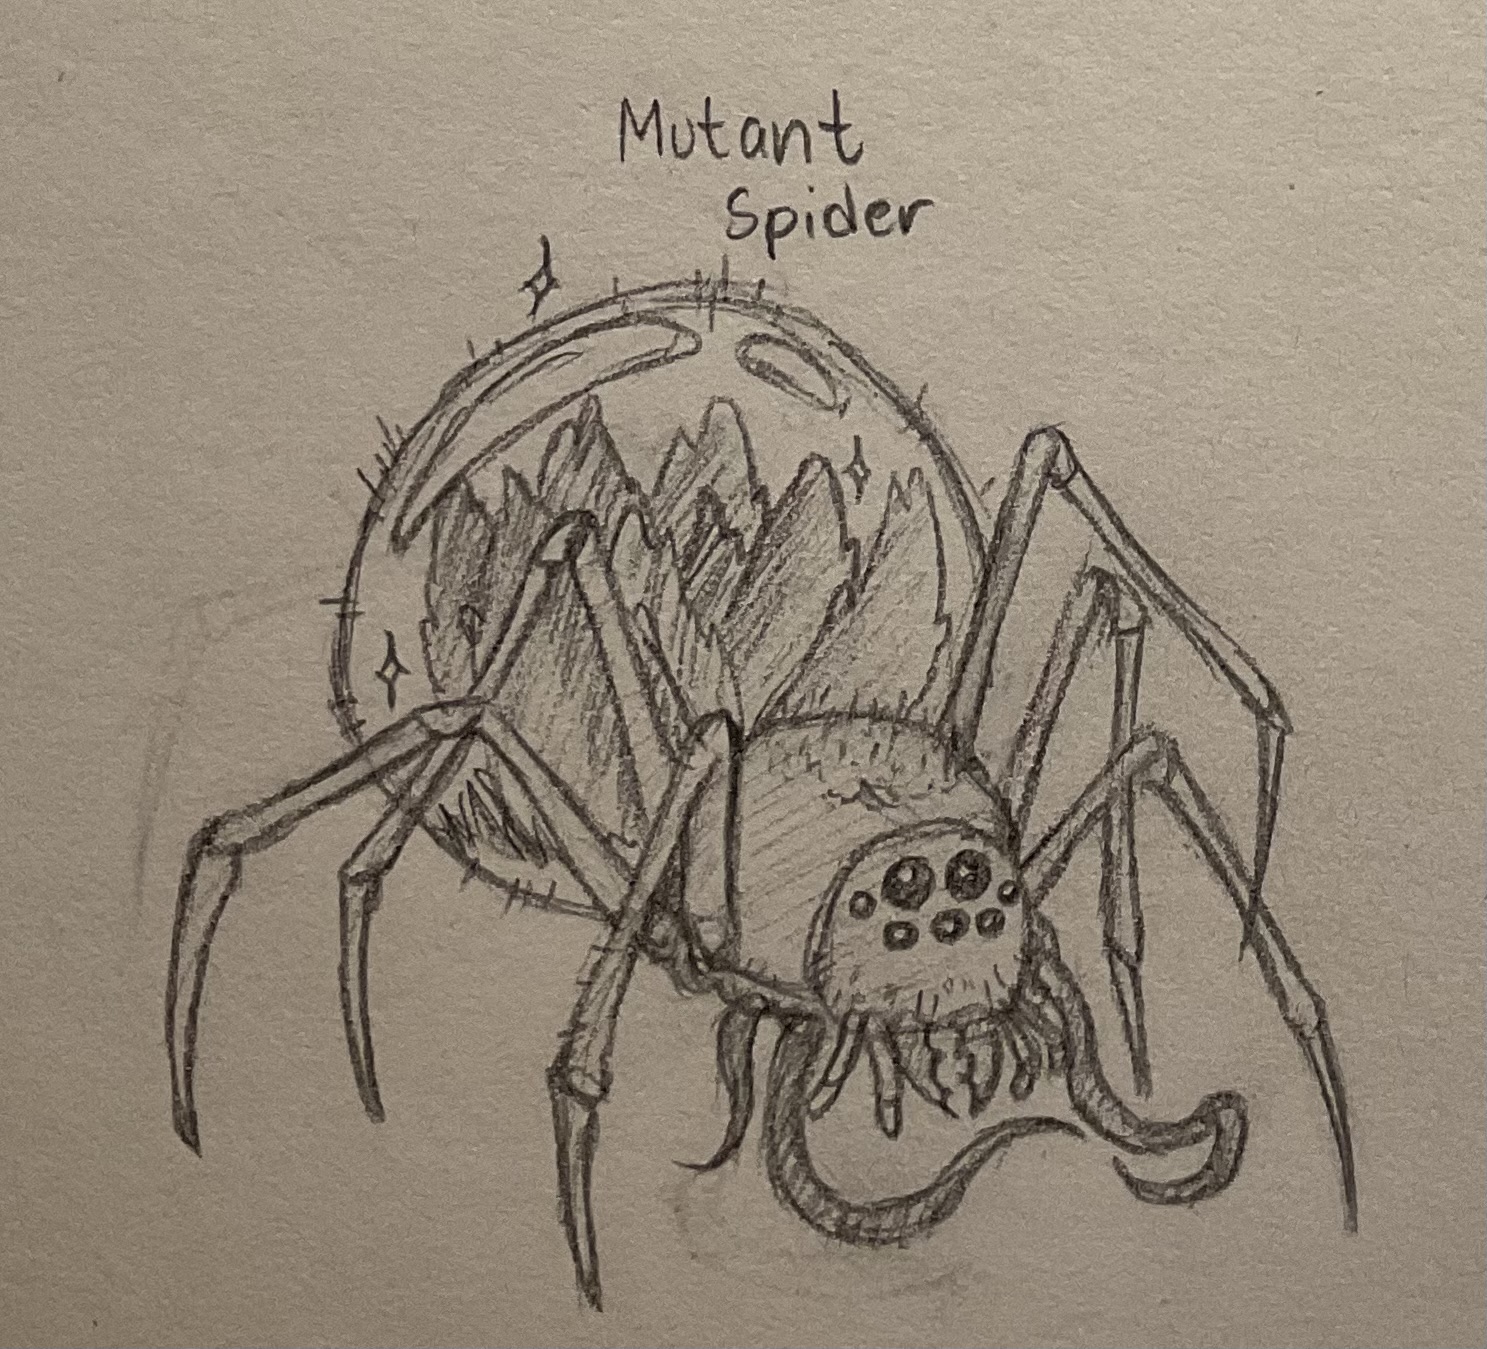 Mutant
Spider